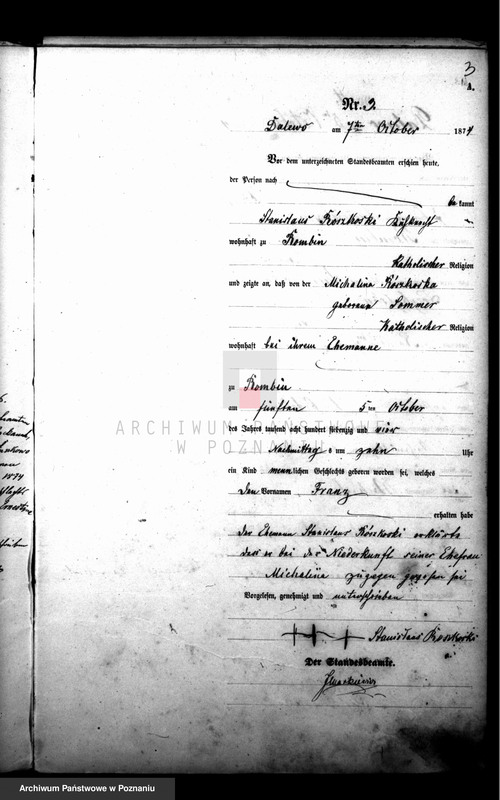 3
A.
Nr. 3
Dalewo am 7ten October 1874
Vor dem unterzeichneten Standesbeamten erschien heute,
der Person nach
be kannt
Stanislaus
wohnhaft zu Rombin
Katholischer Religion
und zeigte an, daß von der Michalina
geborenen Sommer
Katholischer Religion
wohnhaft bei ihrem Ehemanne
zu Rombin
am fünften 5 ten October
des Jahres tausend acht hundert siebenzig und vier
Nachmittag s um zehn Uhr
ein Kind männlichen Geschlechts geboren worden sei, welches
den Vornamen Franz
erhalten habe
Der Ehemann Stanislaus erklärte
dass er bei der Niederkunft seiner Ehefrau
Michalina zugegen gewesen sei
Vorgelesen, genehmigt und unterschrieben
+++ Stanislaus
Der Standesbeamte.
ARCHIWUM PAŃSTWOWE
W POZNANIU
1874
Archiwum Państwowe w Poznaniu